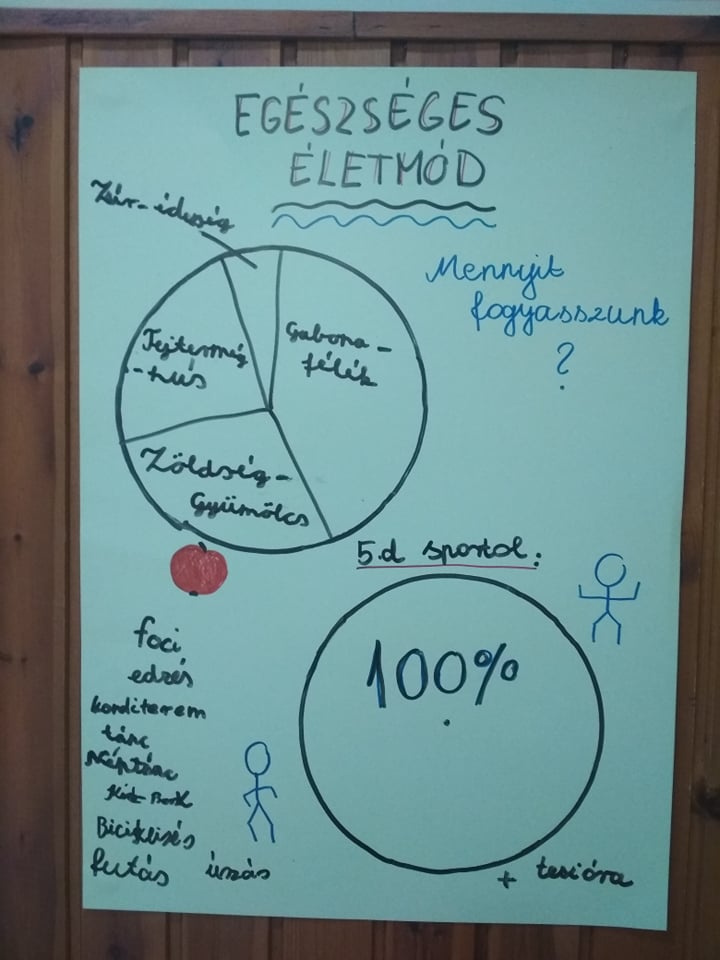 EGÉSZSÉGES
ÉLETMÓD
Zsír-édesség
Mennyit
fogyasszunk
?
Gabona-
félék
Tejtermég
-hús
Zöldség-
Gyümölcs
5.d sportol:
100%
foci
edzés
konditerem
tánc
Néptánc
Biciklizés
futás úszás
+ tesióra